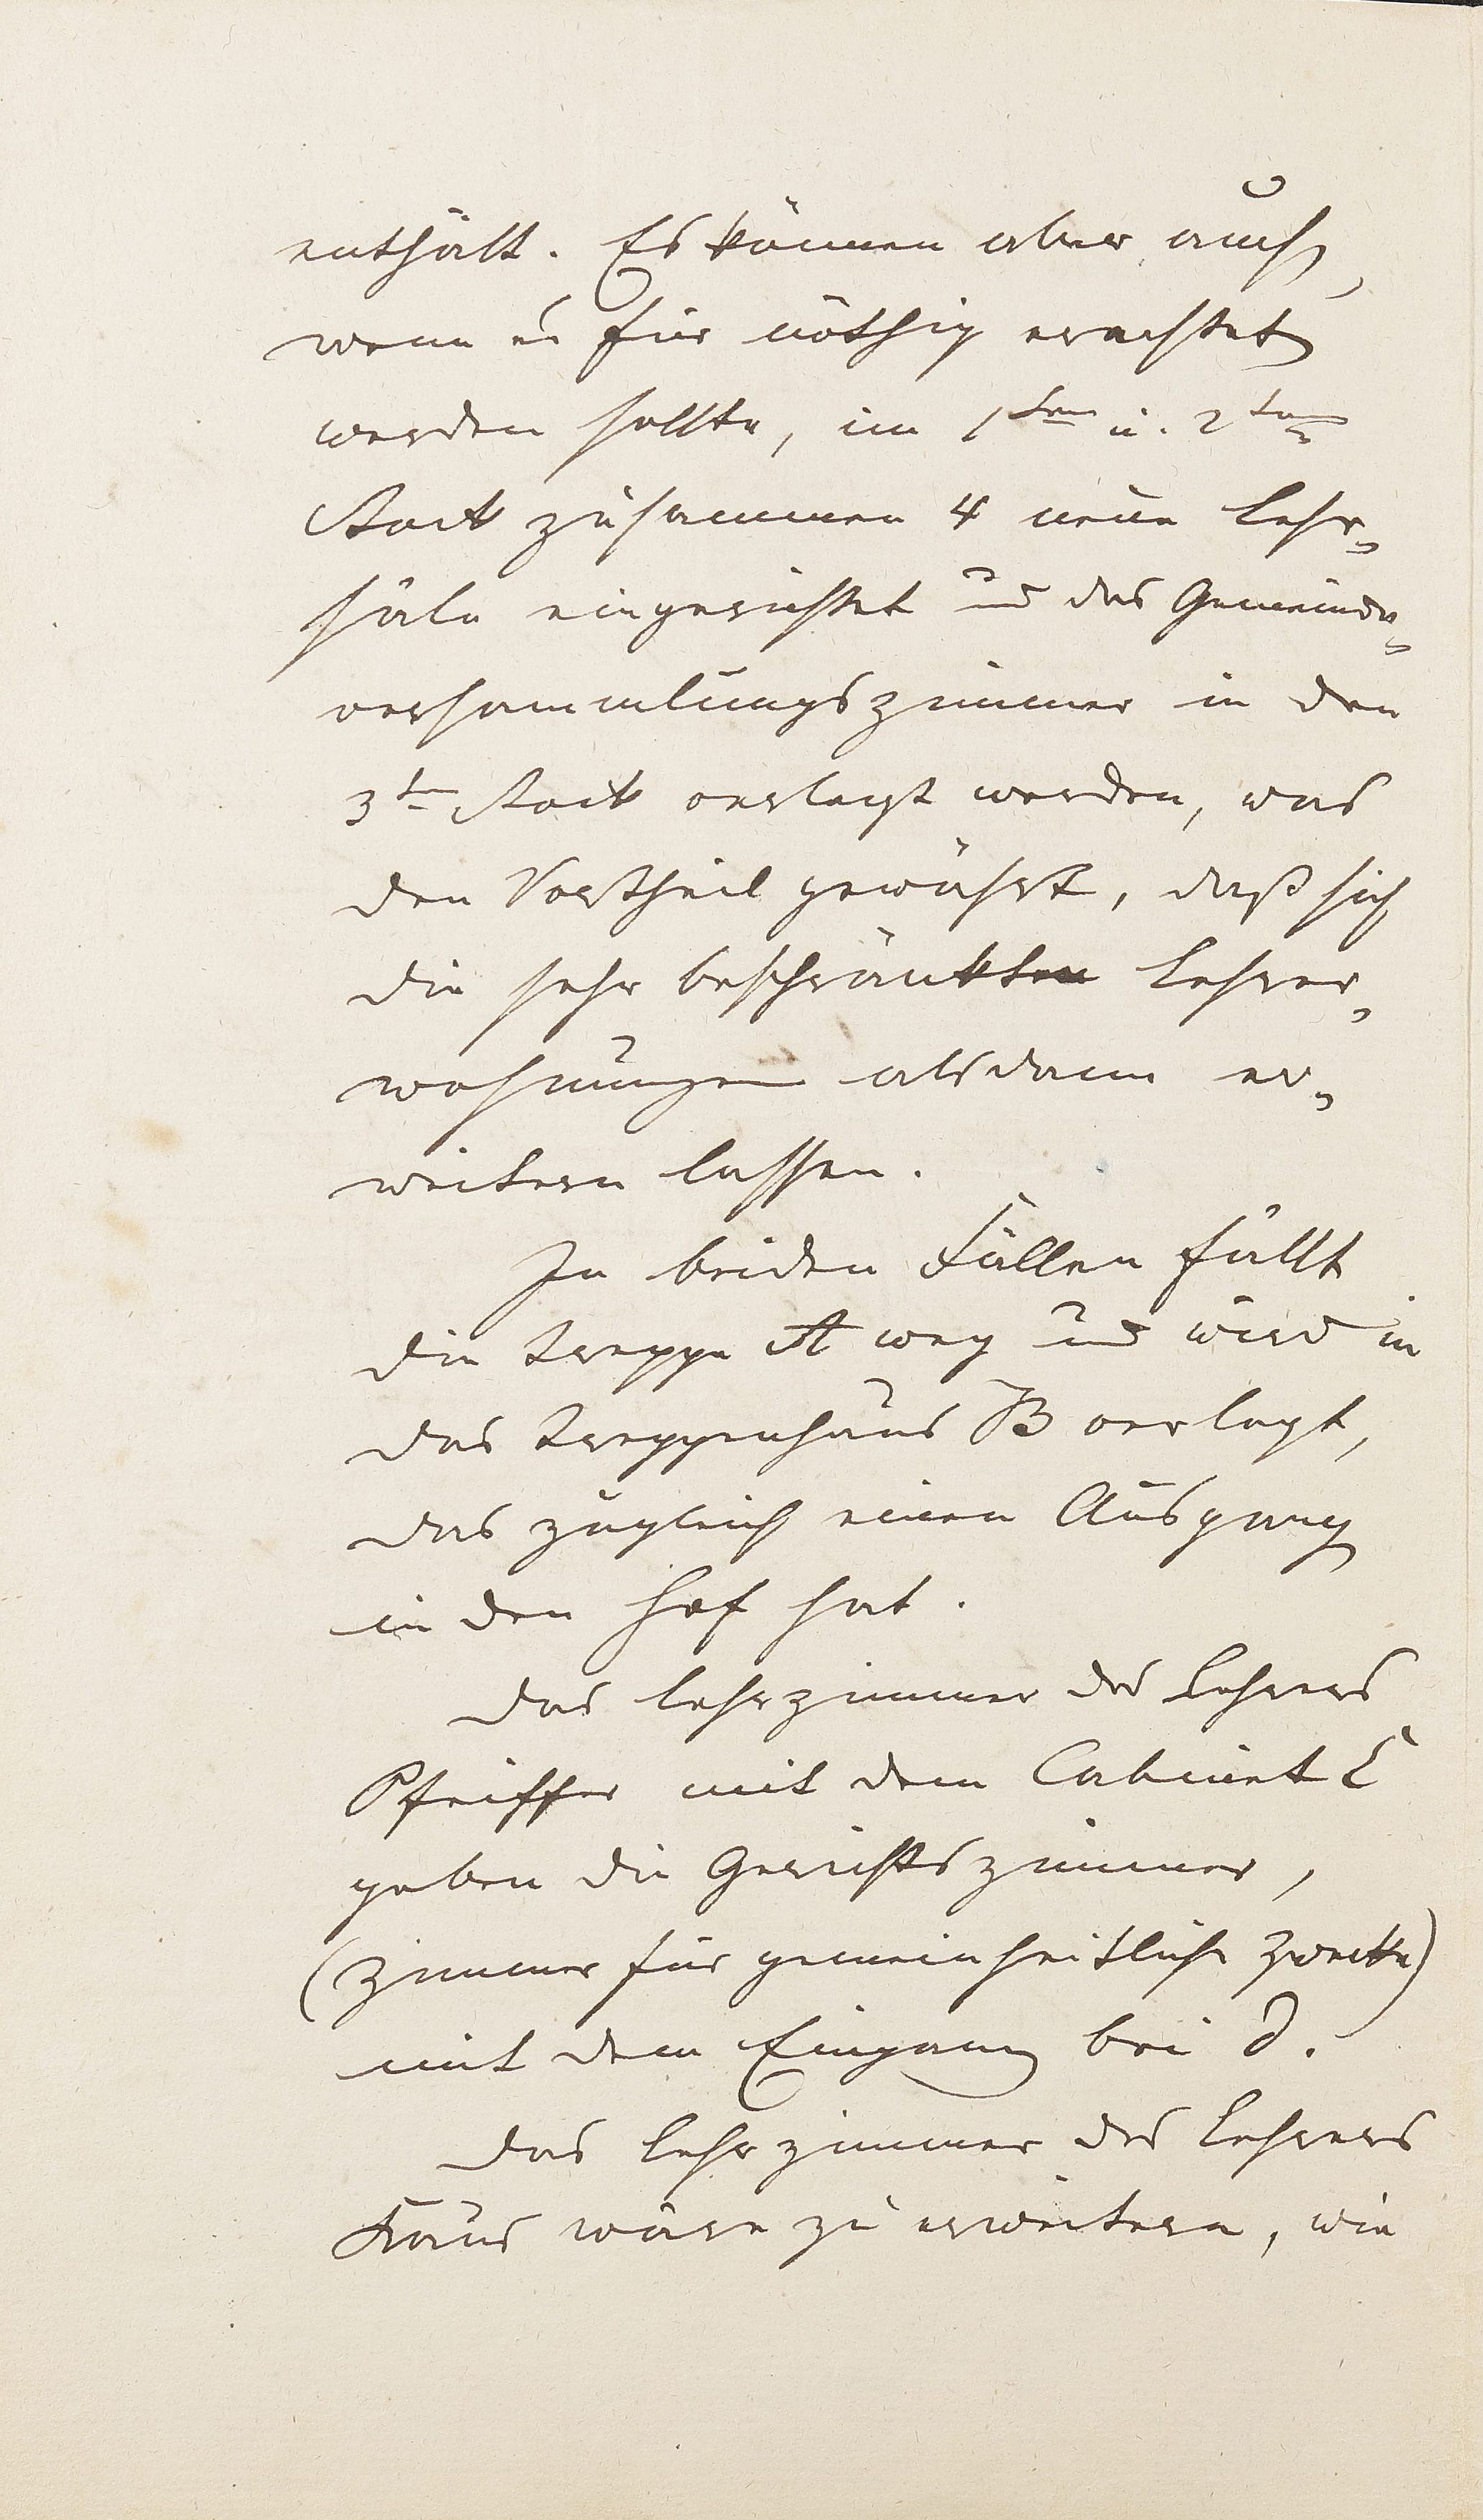 enthält. Es können aber auch,
wenn es für nöthig erachtet
werden sollte, im 1ten u. 2ten
Stock zusammen 4 neue Lehr-
säle eingerichtet und das Gemeinde-
versammlungszimmer in den
3ten Stock verlegt werden, was
den Vortheil gewährt, daß sich
die sehr beschränkten Lehrer-
wohnungen alsdann er-
weitern lassen.
In beiden Fällen fällt
die Treppe A weg und wird in
das Treppenhaus B verlegt,
das zugleich einen Ausgang
in den Hof hat.
Das Lehrzimmer des Lehrers
Pfeiffer mit dem Cabinet C
geben die Gerichtszimmer,
(Zimmer für gemeinheitliche Zwecke)
mit dem Eingang bei d.
Das Lehrzimmer des Lehrers
Kraus wäre zu erweitern, wie